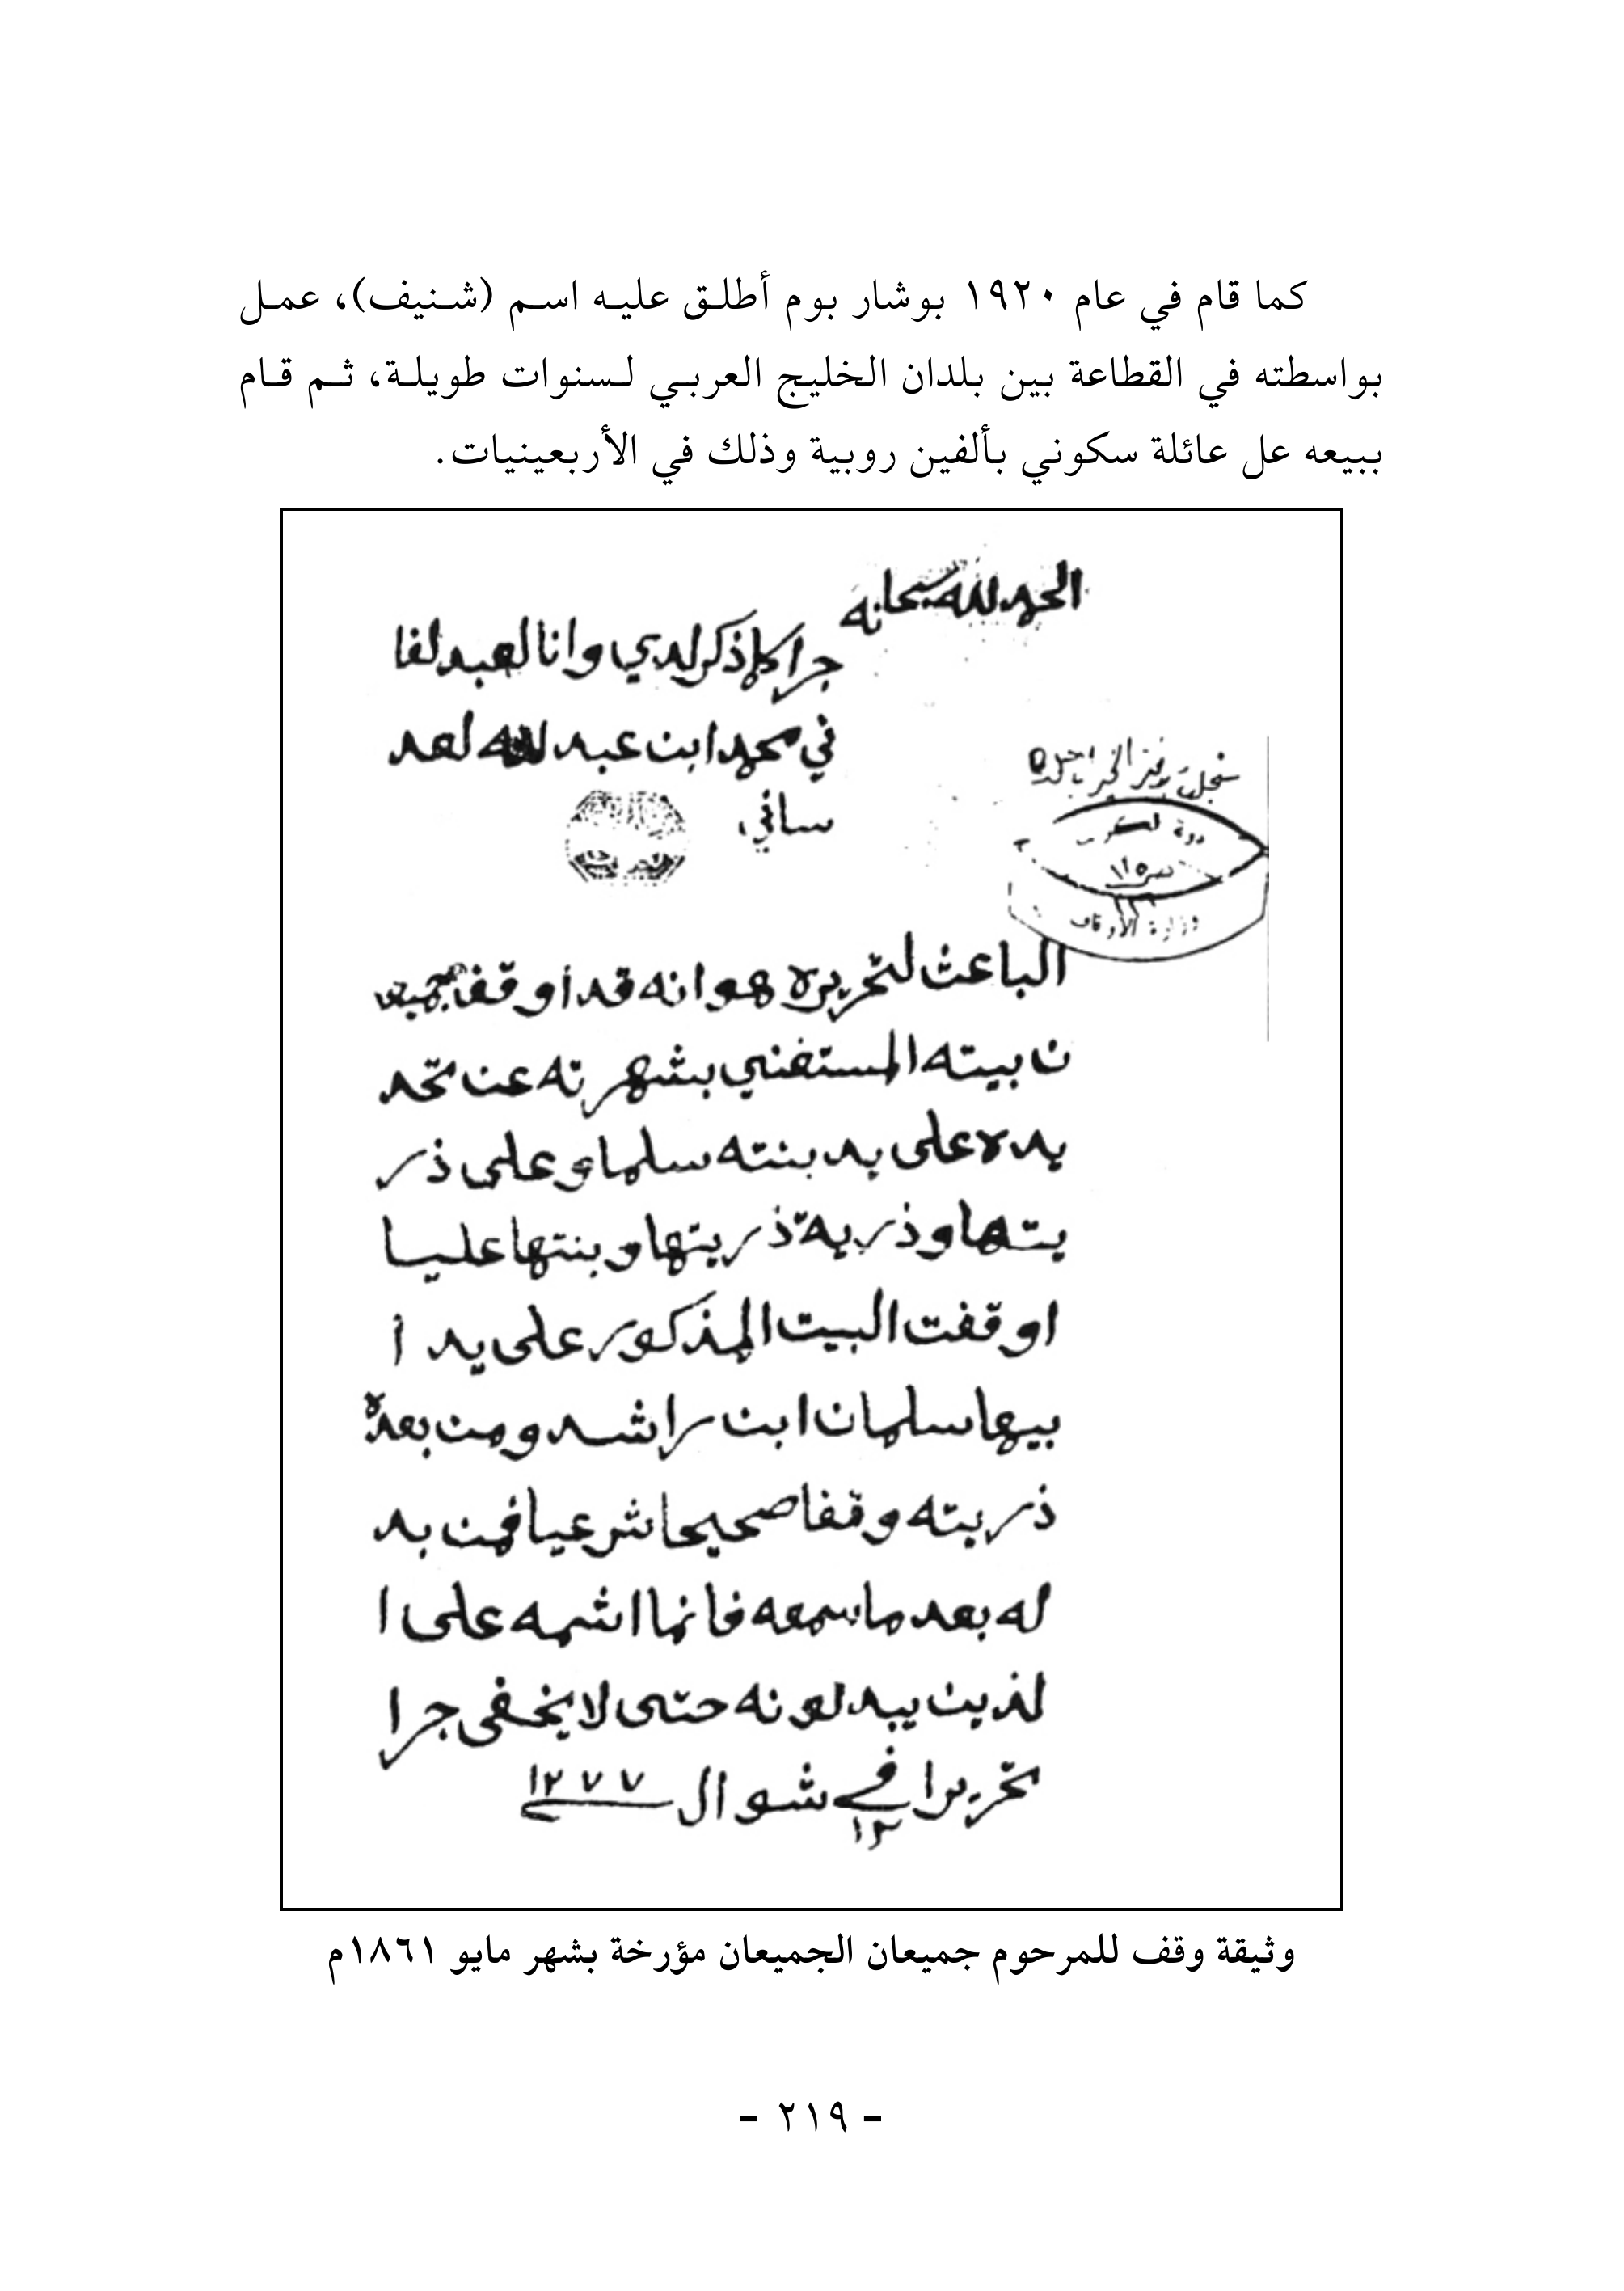 كما قام في عام ١٩٢٠ بوشار بوم أطلق عليه اسم (شنيف)، عمل
بواسطته في القطاعة بين بلدان الخليج العربي لسنوات طويلة، ثم قام
ببيعه عل عائلة سكوني بألفين روبية وذلك في الأربعينيات.
الحمد لله سبحانه
جرا كما ذكر لدي وانا العبد لفا
في محمد ابن عبد الله لعد
ساني
دولة الكويت
وزارة الأوقاف
الباعث لتحريره هو انه قد أوقف جميعا
ن بيته المستغني بشهرته عن تحد
يده على يد بنته سلما وعلى ذر
يتها وذرية ذريتها وبنتها عليا
اوقفت البيت المذكور على يد ا
بيها سلمان ابن راشد ومن بعده
ذريته وقفا صحيحا شرعيا فمن بد
له بعد ما سمعه فانما اثمه على ا
لذين يبدلونه حتى لا يخفى جرا
تحريرا في ١٢ شوال ١٢٧٧
وثيقة وقف للمرحوم جميعان الجميعان مؤرخة بشهر مايو ١٨٦١م
- ٢١٩ -